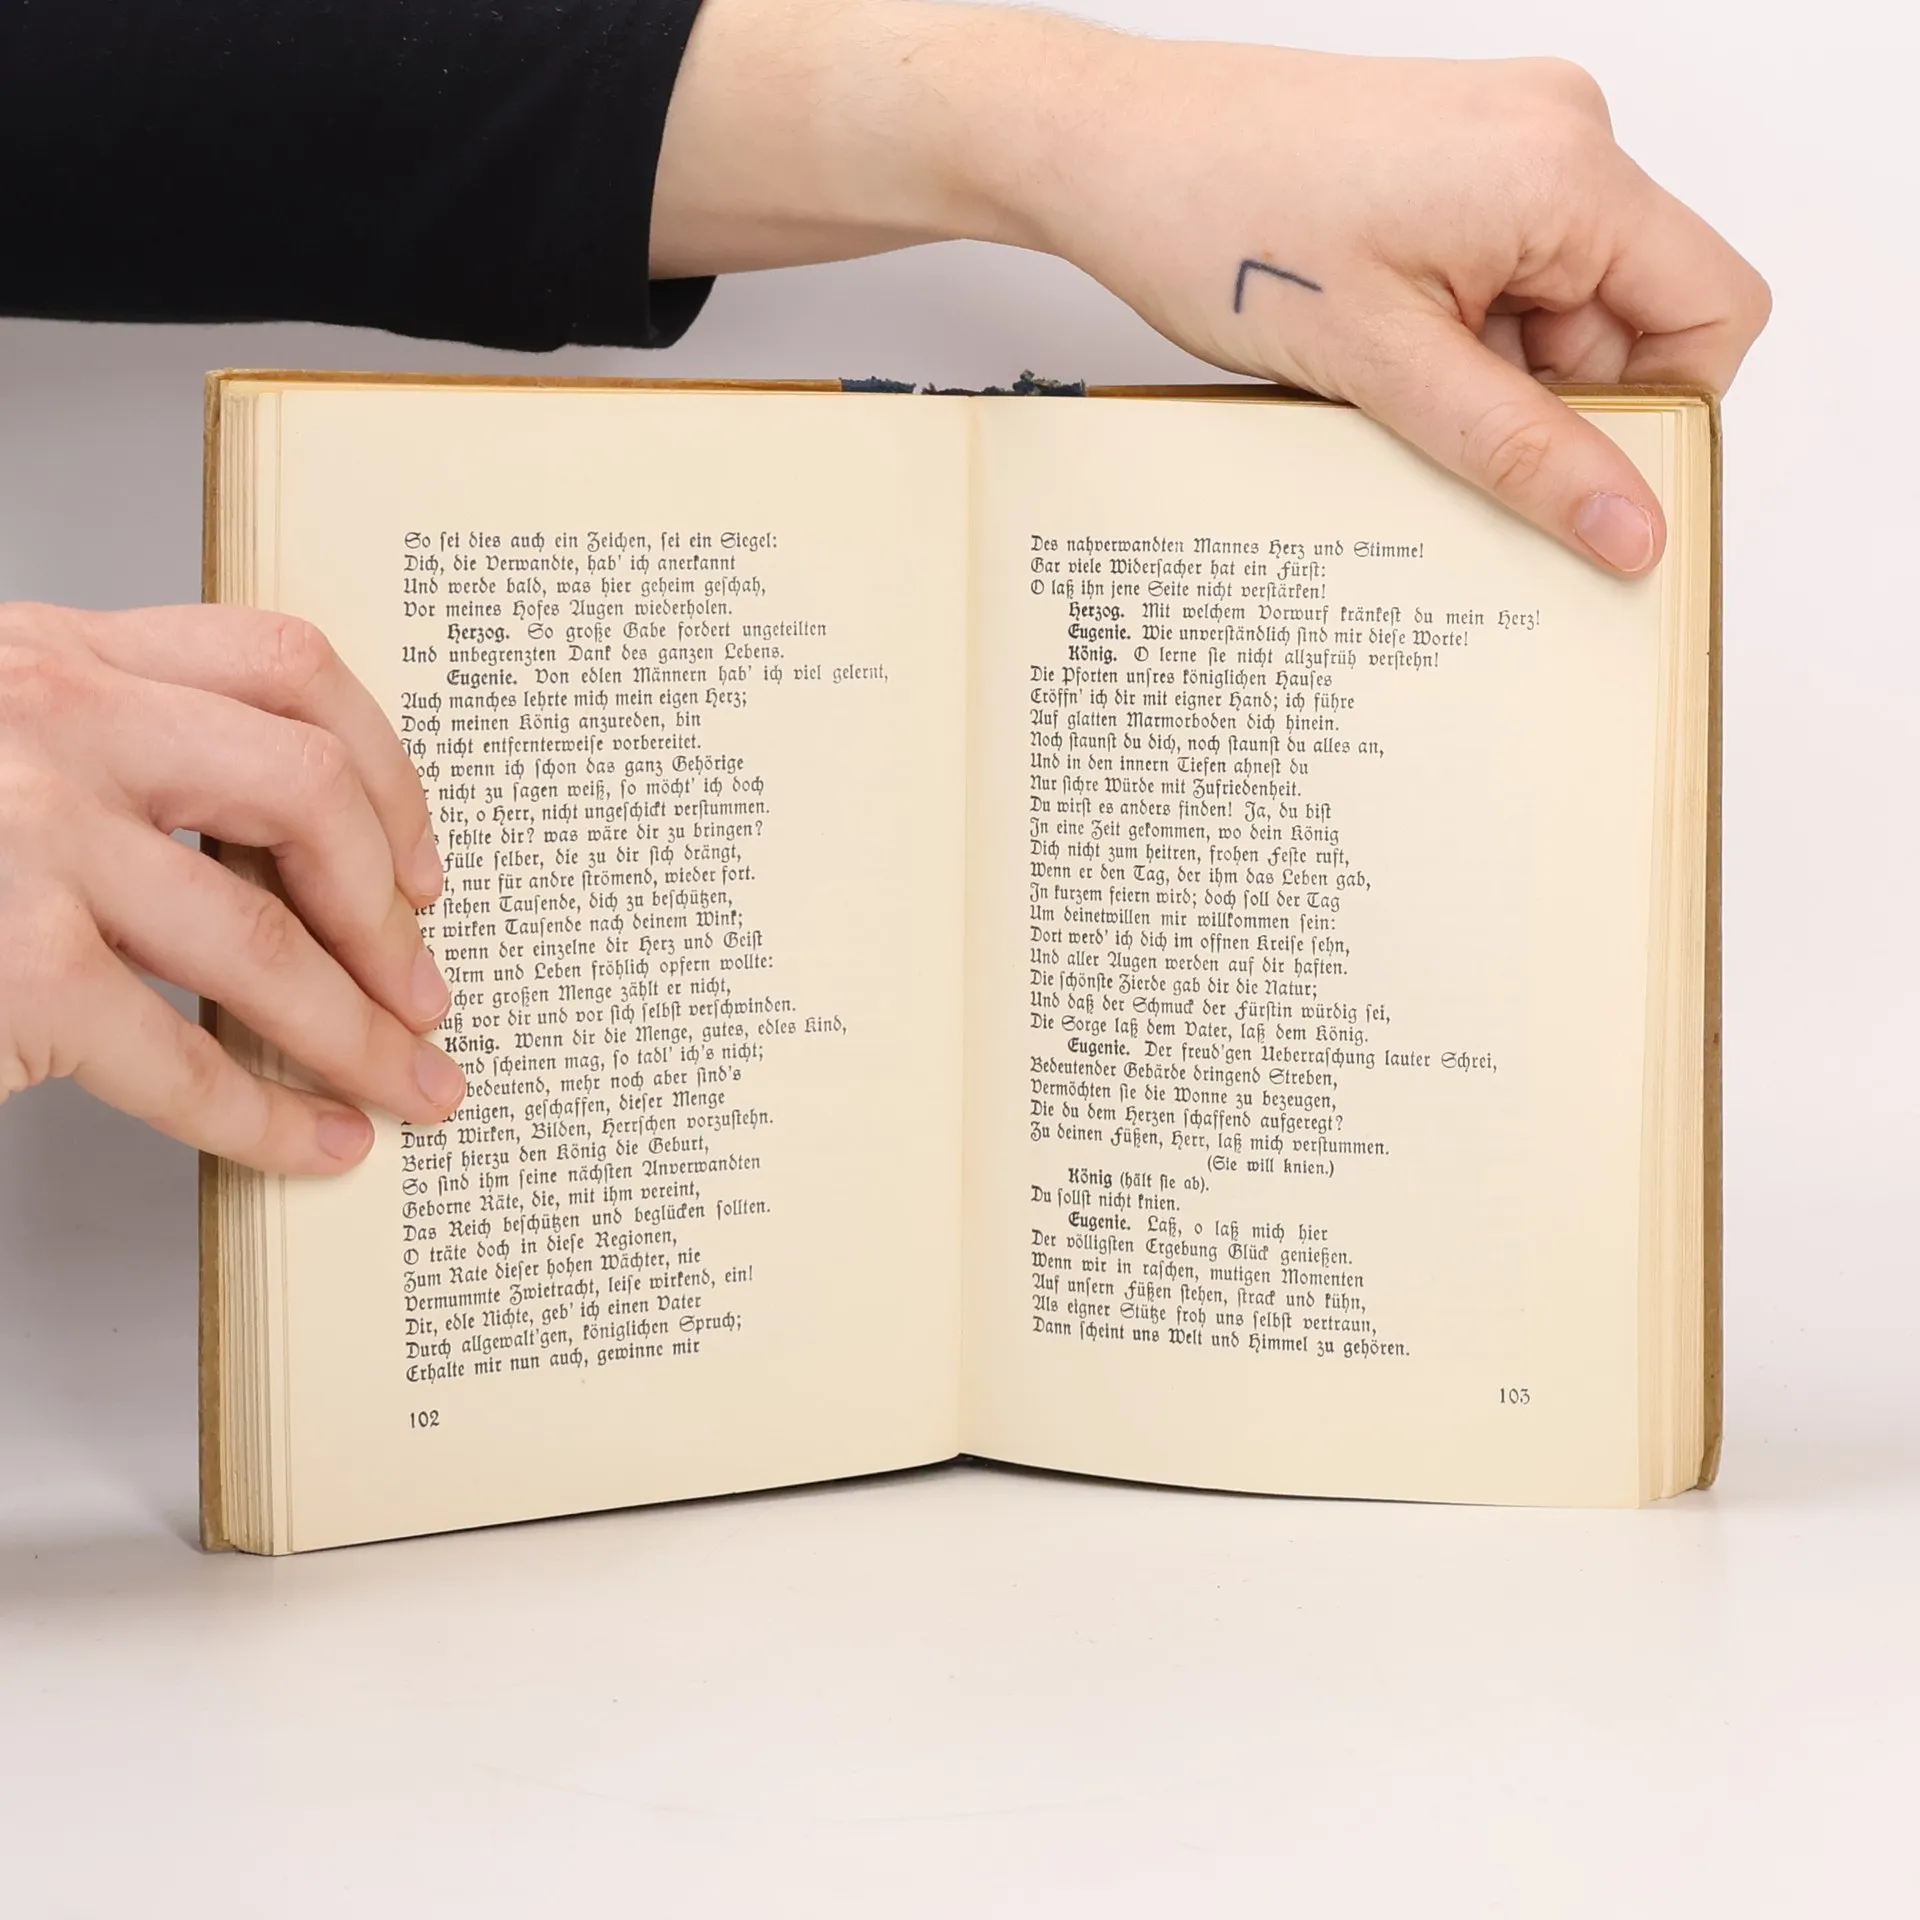 So sei dies auch ein Zeichen, sei ein Siegel:
Dich, die Verwandte, hab' ich anerkannt
Und werde bald, was hier geheim geschah,
Vor meines Hofes Augen wiederholen.
Herzog. So große Gabe fordert ungeteilten
Und unbegrenzten Dank des ganzen Lebens.
Eugenie. Von edlen Männern hab' ich viel gelernt,
Auch manches lehrte mich mein eigen Herz;
Doch meinen König anzureden, bin
Ich nicht entfernterweise vorbereitet.
wenn ich schon das ganz Gehörige
nicht zu sagen weiß, so möcht' ich doch
dir, o Herr, nicht ungeschickt verstummen.
fehlte dir? was wäre dir zu bringen?
Fülle selber, die zu dir sich drängt,
nur für andre strömend, wieder fort.
stehen Tausende, dich zu beschützen,
wirken Tausende nach deinem Wink;
wenn der einzelne dir Herz und Geist
Arm und Leben fröhlich opfern wollte:
großen Menge zählt er nicht,
vor dir und vor sich selbst verschwinden.
König. Wenn dir die Menge, gutes, edles Kind,
scheinen mag, so tadl' ich's nicht;
bedeutend, mehr noch aber sind's
wenigen, geschaffen, dieser Menge
Durch Wirken, Bilden, Herrschen vorzustehn.
Berief hierzu den König die Geburt,
So sind ihm seine nächsten Anverwandten
Geborne Räte, die, mit ihm vereint,
Das Reich beschützen und beglücken sollten.
O träte doch in diese Regionen,
Zum Rate dieser hohen Wächter, nie
Vermummte Zwietracht, leise wirkend, ein!
Dir, edle Nichte, geb' ich einen Vater
Durch allgewalt'gen, königlichen Spruch;
Erhalte mir nun auch, gewinne mir
102
Des nahverwandten Mannes Herz und Stimme!
Gar viele Widersacher hat ein Fürst:
O laß ihn jene Seite nicht verstärken!
Herzog. Mit welchem Vorwurf kränkest du mein Herz!
Eugenie. Wie unverständlich sind mir diese Worte!
König. O lerne sie nicht allzufrüh verstehn!
Die Pforten unsres königlichen Hauses
Eröffn' ich dir mit eigner Hand; ich führe
Auf glatten Marmorboden dich hinein.
Noch staunst du dich, noch staunst du alles an,
Und in den innern Tiefen ahnest du
Nur sichre Würde mit Zufriedenheit.
Du wirst es anders finden! Ja, du bist
In eine Zeit gekommen, wo dein König
Dich nicht zum heitren, frohen Feste ruft,
Wenn er den Tag, der ihm das Leben gab,
In kurzem feiern wird; doch soll der Tag
Um deinetwillen mir willkommen sein:
Dort werd' ich dich im offnen Kreise sehn,
Und aller Augen werden auf dir haften.
Die schönste Zierde gab dir die Natur;
Und daß der Schmuck der Fürstin würdig sei,
Die Sorge laß dem Vater, laß dem König.
Eugenie. Der freud'gen Ueberraschung lauter Schrei,
Bedeutender Gebärde dringend Streben,
Vermöchten sie die Wonne zu bezeugen,
Die du dem Herzen schaffend aufgeregt?
Zu deinen Füßen, Herr, laß mich verstummen.
(Sie will knien.)
König (hält sie ab).
Du sollst nicht knien.
Eugenie. Laß, o laß mich hier
Der völligsten Ergebung Glück genießen.
Wenn wir in raschen, mutigen Momenten
Auf unsern Füßen stehen, strack und kühn,
Als eigner Stütze froh uns selbst vertraun,
Dann scheint uns Welt und Himmel zu gehören.
103